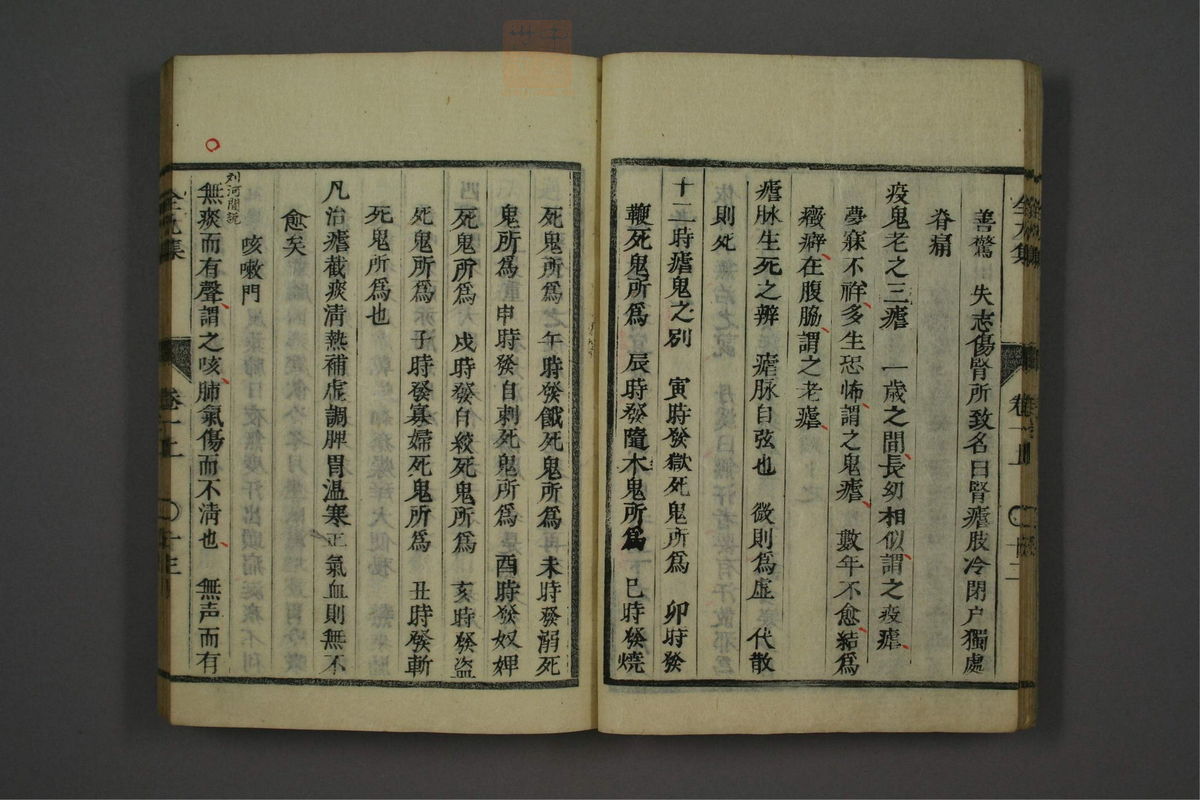 善驚 失志傷腎所致名曰腎瘧肢冷閉户獨處
脊痛
疫鬼老之三瘧 一歲之間長幼相似謂之疫瘧
夢寐不祥多生恐怖謂之鬼瘧 數年不愈結爲
癥癖在腹脇謂之老瘧
瘧脉生死之辨 瘧脉自弦也 微則爲虛 代散
則死
十二時瘧鬼之別 寅時發獄死鬼所爲 卯時發
鞭死鬼所爲 辰時發隨木鬼所爲 巳時發燒
死鬼所爲 午時發餓死鬼所爲 未時發溺死
鬼所爲 申時發自刺死鬼所爲 酉時發奴婢
死鬼所爲 戌時發自絞死鬼所爲 亥時發盗
死鬼所爲 子時發寡婦死鬼所爲 丑時發斬
死鬼所爲也
凡治瘧截痰清熱補虛調脾胃温寒正氣血則無不
愈矣
咳嗽門
刘河間説
無痰而有聲謂之咳肺氣傷而不清也 無声而有
全九集 卷一上